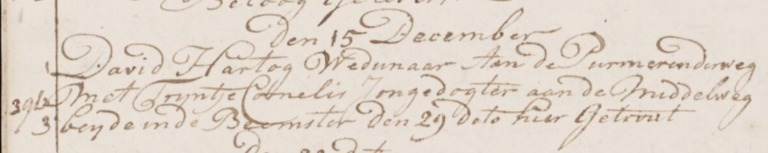 den 15 December
1 David Hartog Wedunaar Aan de Purmerenderweg
394 2 Met Tryntje Cornelis Jongedogter aan de Middelweg
3 beyde inde Beemster den 29 dete hier Getrout